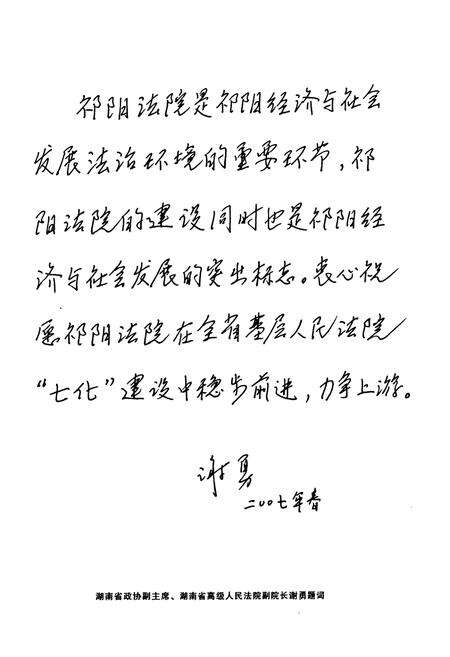 祁阳法院是祁阳经济与社会
发展法治环境的重要环节，祁
阳法院的建设同时也是祁阳经
济与社会发展的突出标志。衷心祝
愿祁阳法院在全省基层人民法院
“七化”建设中稳步前进，力争上游。
谢勇
二00七年春
湖南省政协副主席、湖南省高级人民法院副院长谢勇题词